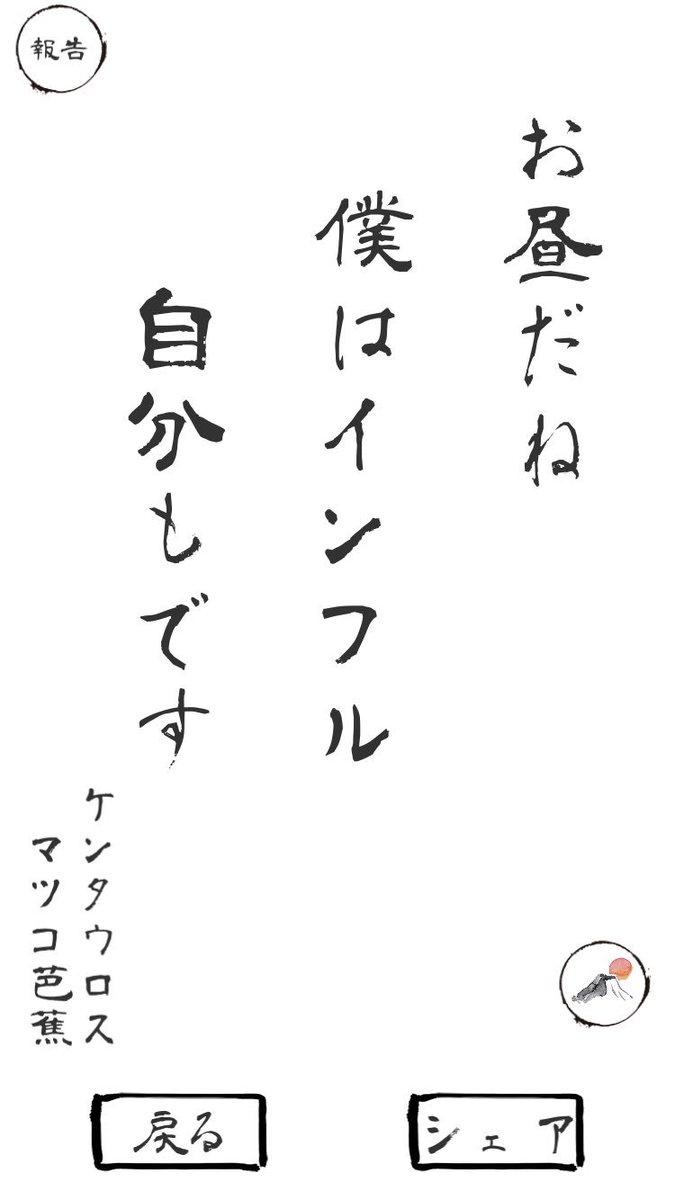 報告
お昼だね
僕はインフル
自分もです
ケンタウロス
マツコ芭蕉
戻る
シェア